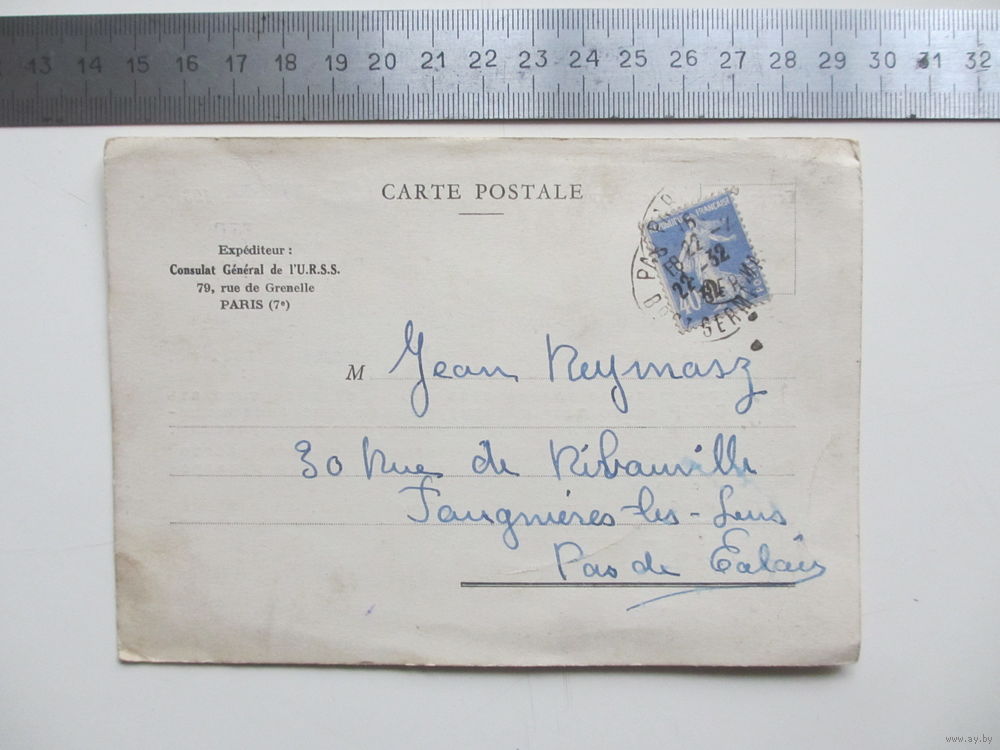 13 14 15 16 17 18 19 20 21 22 23 24 25 26 27 28 29 30 31 32
CARTE POSTALE
Expéditeur :
Consulat Général de l'U.R.S.S.
79, rue de Grenelle
PARIS (7e)
15
22 -2
-32
40
GERM
M Jean Reymasz
30 Rue de Ribauvillé
Fouqnières-les-Lens
Pas de Calais
www.ay.by